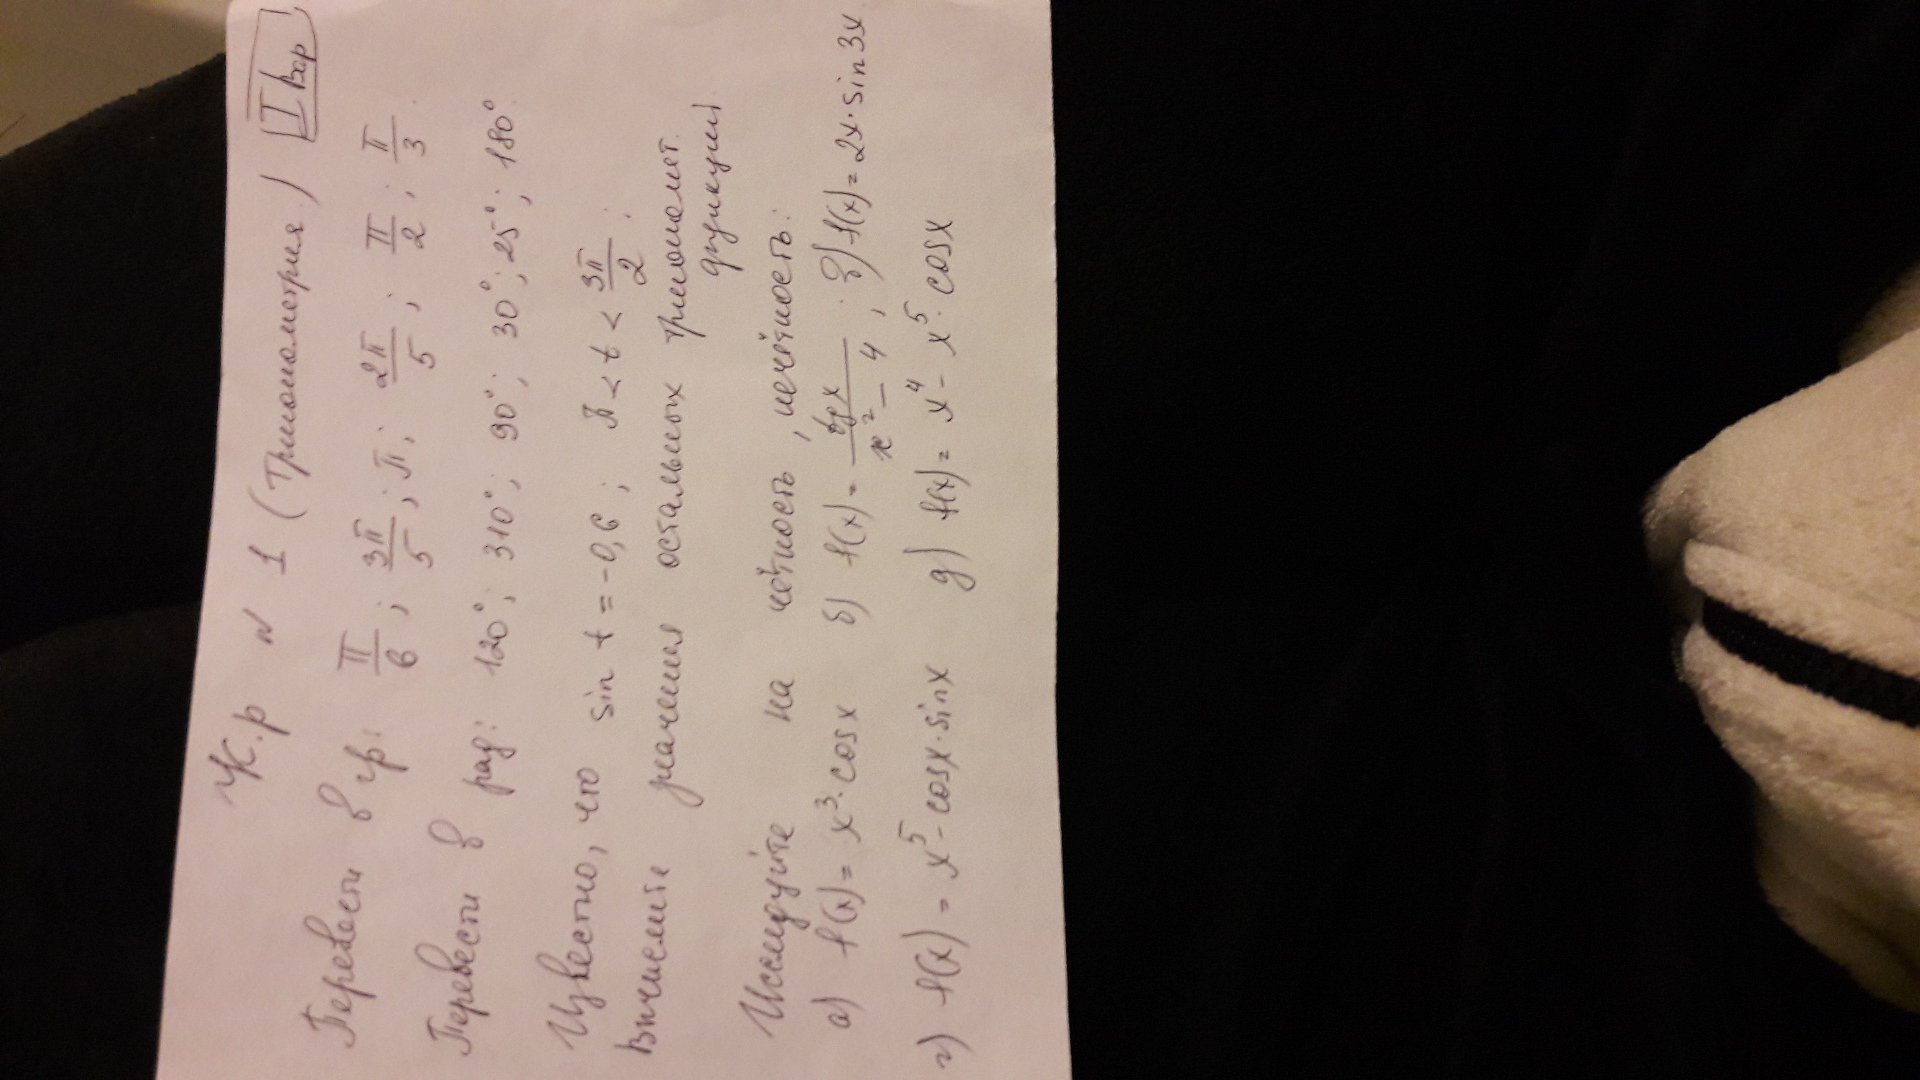 К.р № 1 (Тригонометрия) I вар
Перевести в гр: π/6; 3π/5; π; 2π/5; π/2; π/3.
Перевести в рад: 120°; 310°; 90°; 30°; 25°; 180°.
Известно, что sin t = -0,6; π < t < 3π/2;
Вычислите значения остальных тригономет.
функций.
Исследуйте на чётность, нечётность:
а) f(x) = x³·cosx б) f(x) = tgx/x²-4; в) f(x) = 2x·sin3x
г) f(x) = x⁵-cosx·sinx д) f(x) = x⁴-x⁵·cosx